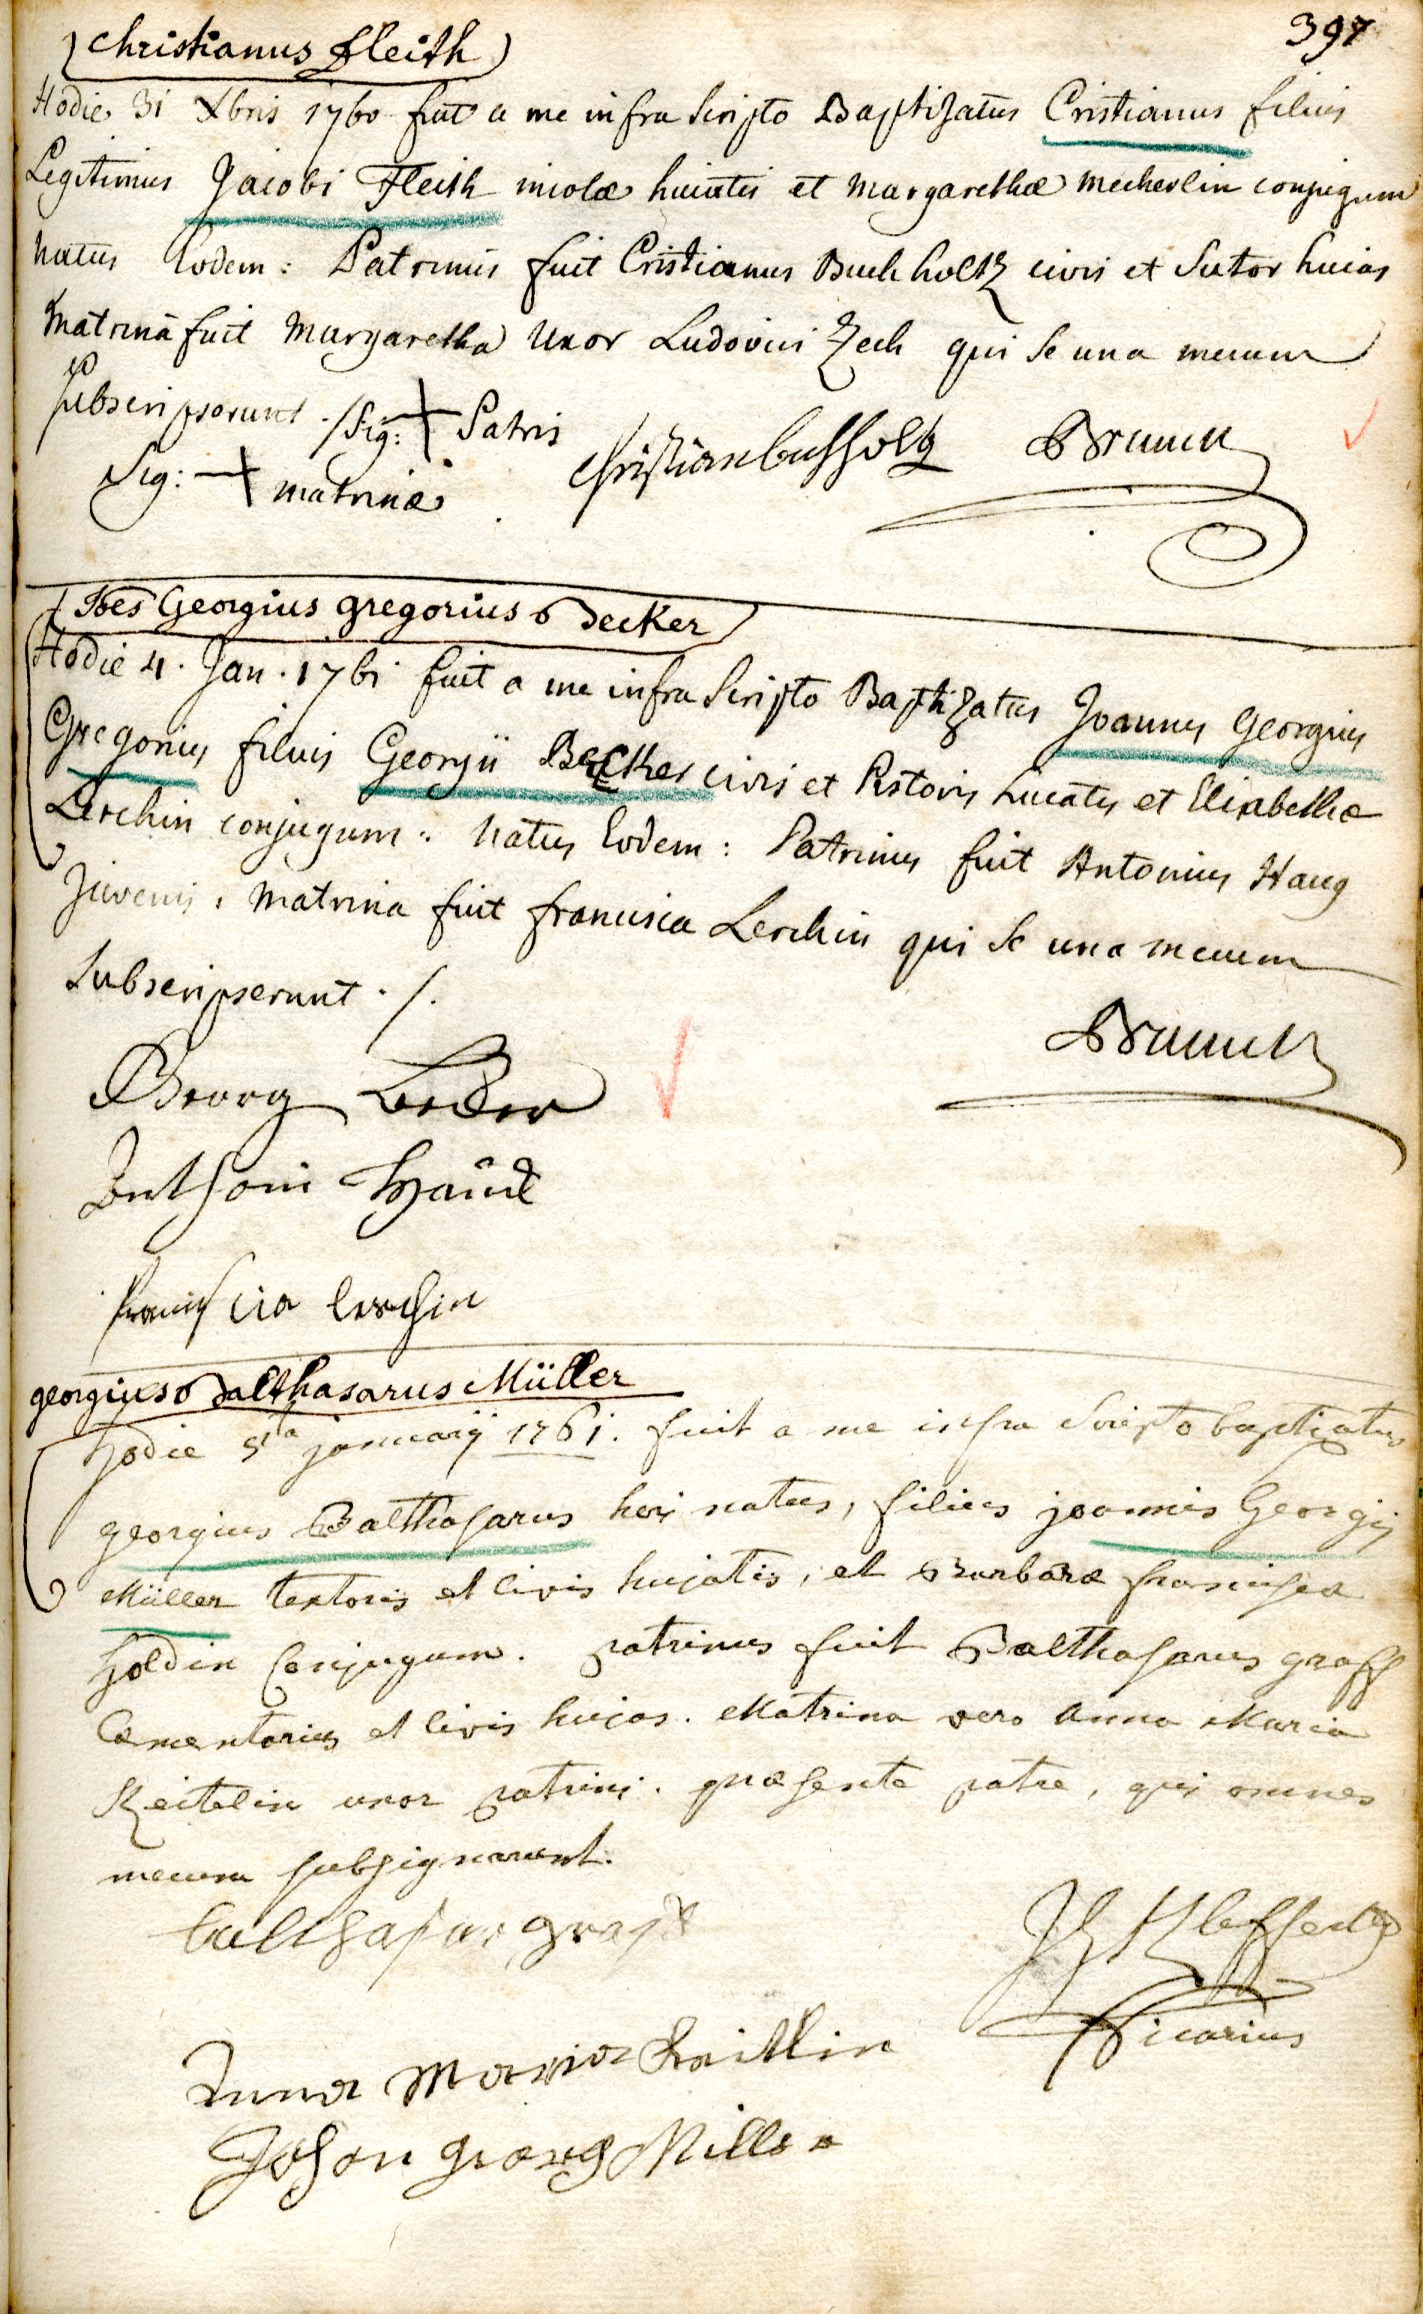 397
Christianus Fleith
Hodie 31 Xbris 1760 fuit a me infra Scripto Baptizatus Cristianus filius
Legitimus Jacobi Fleith incolæ huiatis et Margarethæ Mecherlin conjugum
natus Eodem : Patrinus fuit Cristianus Buchholtz civis et Sutor huias
Matrina fuit Margaretha Uxor Ludovici Zech qui se una mecum
subscripserunt ./. Sig: + Patris
Sig: + matrinæ
Christian buchholtz
Brunck
Joes Georgius gregorius Becker
Hodie 4. Jan. 1761 fuit a me infra Scripto Baptizatus Joannes Georgius
Gregorius filius Georgii Becker civis et Pistoris huiatis et Elisabethæ
Lerchin conjugum : natus Eodem : Patrinus fuit Antonius Haug
Juvenis, Matrina fuit francisca Lerchin qui se una mecum
subscripserunt ./.
Brunck
Georg Becker
Anthoni
francisca lerchin
georgius Balthasarus Müller
hodie 5ta januarij 1761. fuit a me infra Scripto baptizatus
georgius Balthasarus heri natus, filius joannis Georgij
Müller textoris et Civis hujatis, et Barbaræ franciscæ
Holdin Conjugum. patrinus fuit Balthasarus graff
Cæmentarius et Civis hujas. Matrina vero Anna Maria
Keitelin uxor patrini. præsente patre, qui omnes
mecum subsignarunt.
balthasar graff
Vicarius
Anna Maria Kaitlin
Johan georg Miller